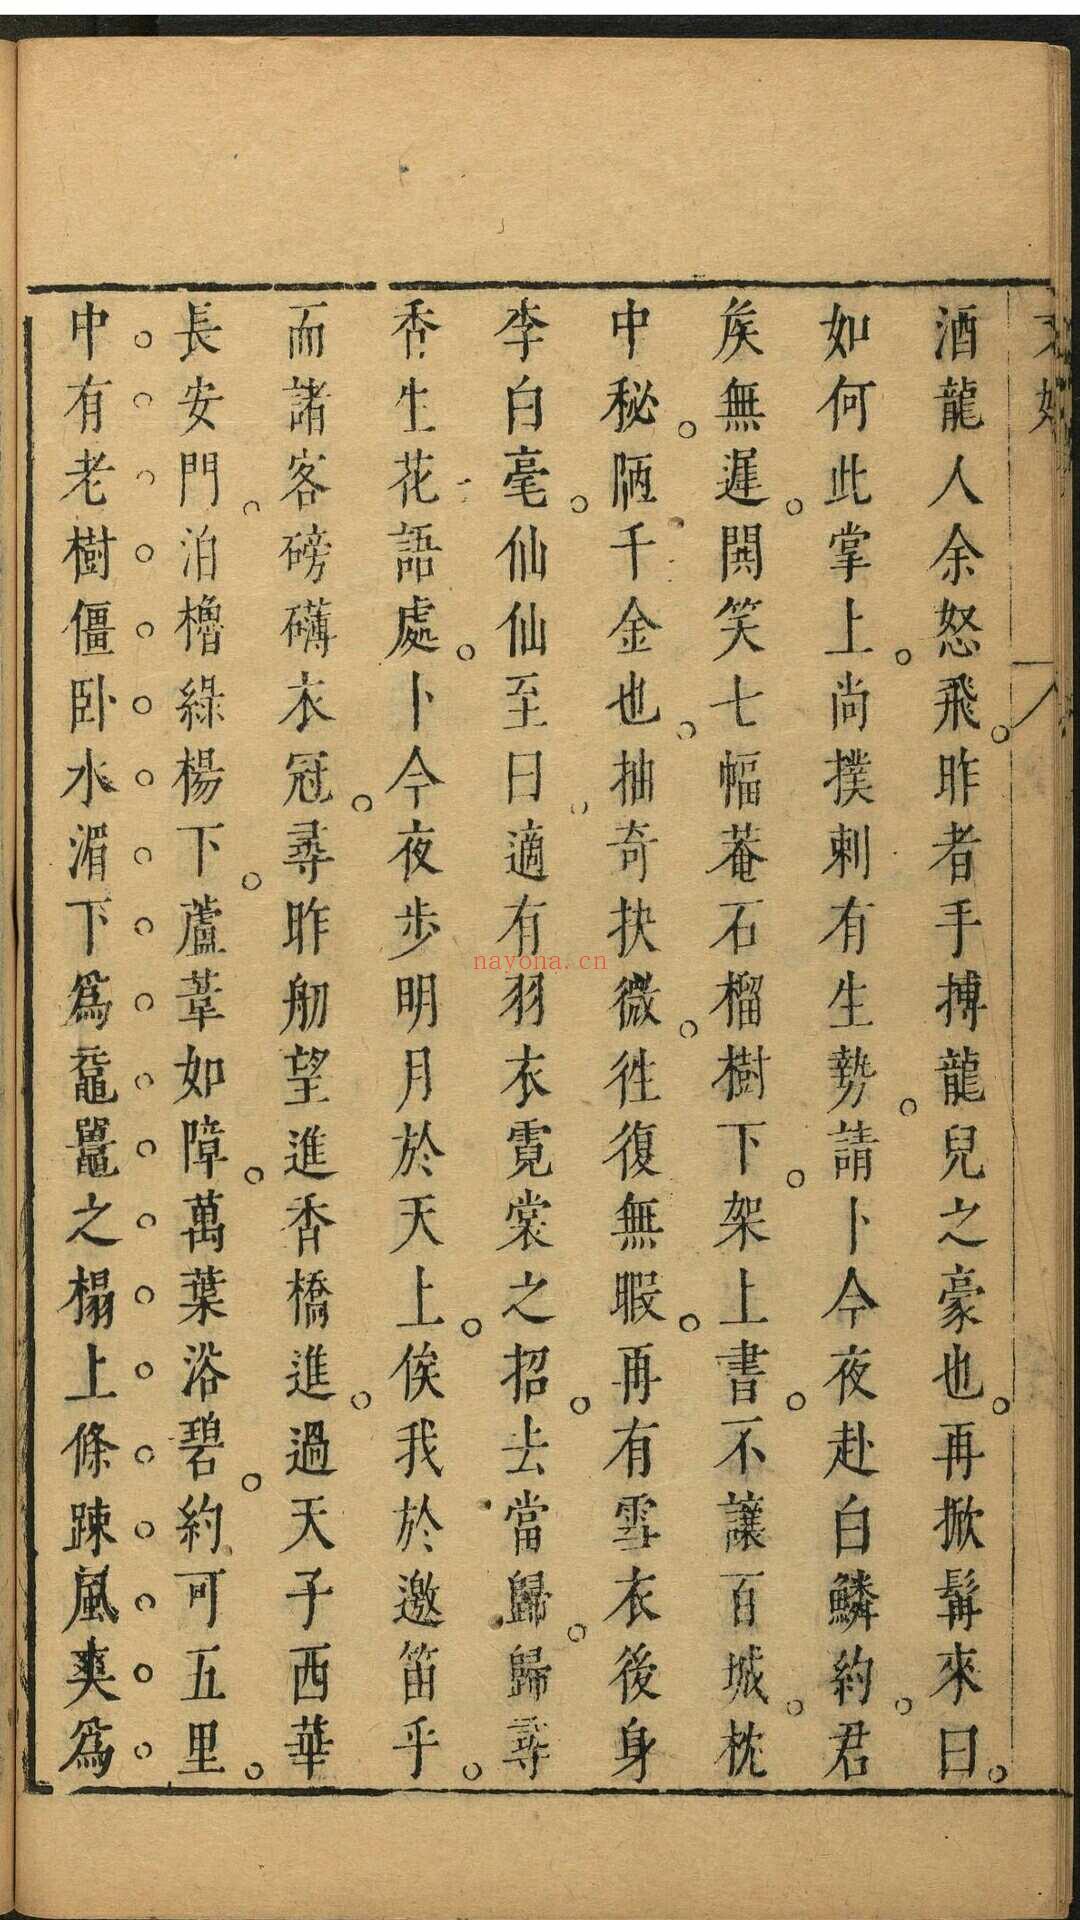 酒龍人余怒飛。昨者手搏龍兒之豪也。再掀髯來曰。
如何此掌上。尚撲刺有生勢。請卜今夜赴白鱗約。君
矣無遲。閧笑七幅菴石榴樹下。架上書。不讓百城。枕
中秘。陋千金也。抽奇抉微。徃復無暇。再有雪衣後身
李白毫。仙仙至曰。適有羽衣霓裳之招。去當歸。歸尋
香生花語處。卜今夜步明月於天上。俟我於邀笛乎。
而諸客磅礴衣冠。尋昨舠望進香橋進。過天子西華
長安門。泊櫓綠楊下。蘆葦如障。萬葉浴碧。約可五里。
中有老樹僵卧水湄下爲黿鼉之榻上條踈風爽爲
nayona.cn